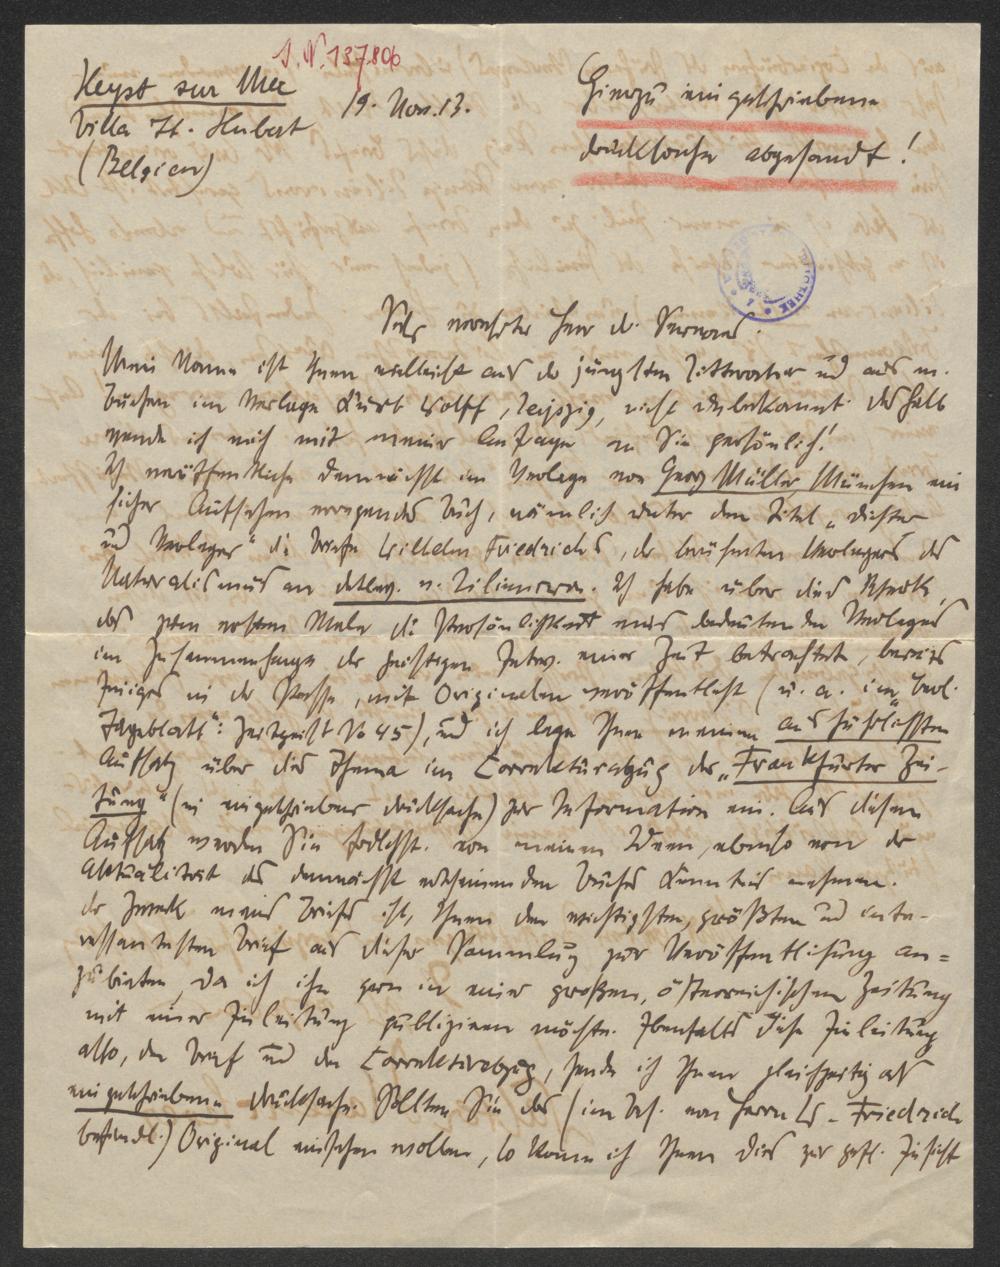 I.N. 137.806
Heyst sur Mer
Villa St. Hubert
(Belgien)
19. Nov. 13.
Hierzu eingeschriebene
Drucksache abgesandt!
Sehr verehrter Herr Dr.
Mein Name ist Ihnen vielleicht aus den jüngsten Zeitworten und aus m.
Büchern im Verlage Kurt Wolff, Leipzig, nicht unbekannt. Deshalb
wende ich mich mit meiner Anfrage an Sie persönlich!
Ich veröffentliche demnächst im Verlage von Georg Müller, München ein
sicher Aufsehen erregendes Buch, nämlich unter dem Titel „Dichter
und Verleger" die Briefe Wilhelm Friedrichs, des berühmten Verlegers des
Naturalismus an Detlev v. Liliencron. Ich habe über dies Werk,
das zum ersten Male die Persönlichkeit eines bedeutenden Verlegers
im Zusammenhange der geistigen Entw. einer Zeit betrachtet, bereits
Einiges in der Presse, mit Originalen veröffentlicht (u. a. im „Berl.
Tageblatt": Zeitgeist No 45), und ich lege Ihnen meinen ausführlichsten
Aufsatz über dies Thema im Correkturabzug der „Frankfurter Zei-
tung" (in eingeschriebener Drucksache) zur Information ein. Aus diesem
Aufsatz werden Sie von meinen Ideen, ebenso von der
Aktualität des demnächst erscheinenden Buches Kenntnis nehmen.
Der Zweck meines Briefes ist, Ihnen den wichtigsten, größten und inte-
ressantesten Brief aus dieser Sammlung zur Veröffentlichung an=
zubieten, da ich ihn gern in einer großen, österreichischen Zeitung
mit einer Einleitung publizieren möchte. Ebenfalls diese Einleitung
also, den Brief und den Correkturabzug, sende ich Ihnen gleichzeitig als
eingeschriebene Drucksache. Sollten Sie das (im Bes. von Herrn W. Friedrich
befindl.) Original einsehen wollen, so kann ich Ihnen dies zur gefl. Einsicht